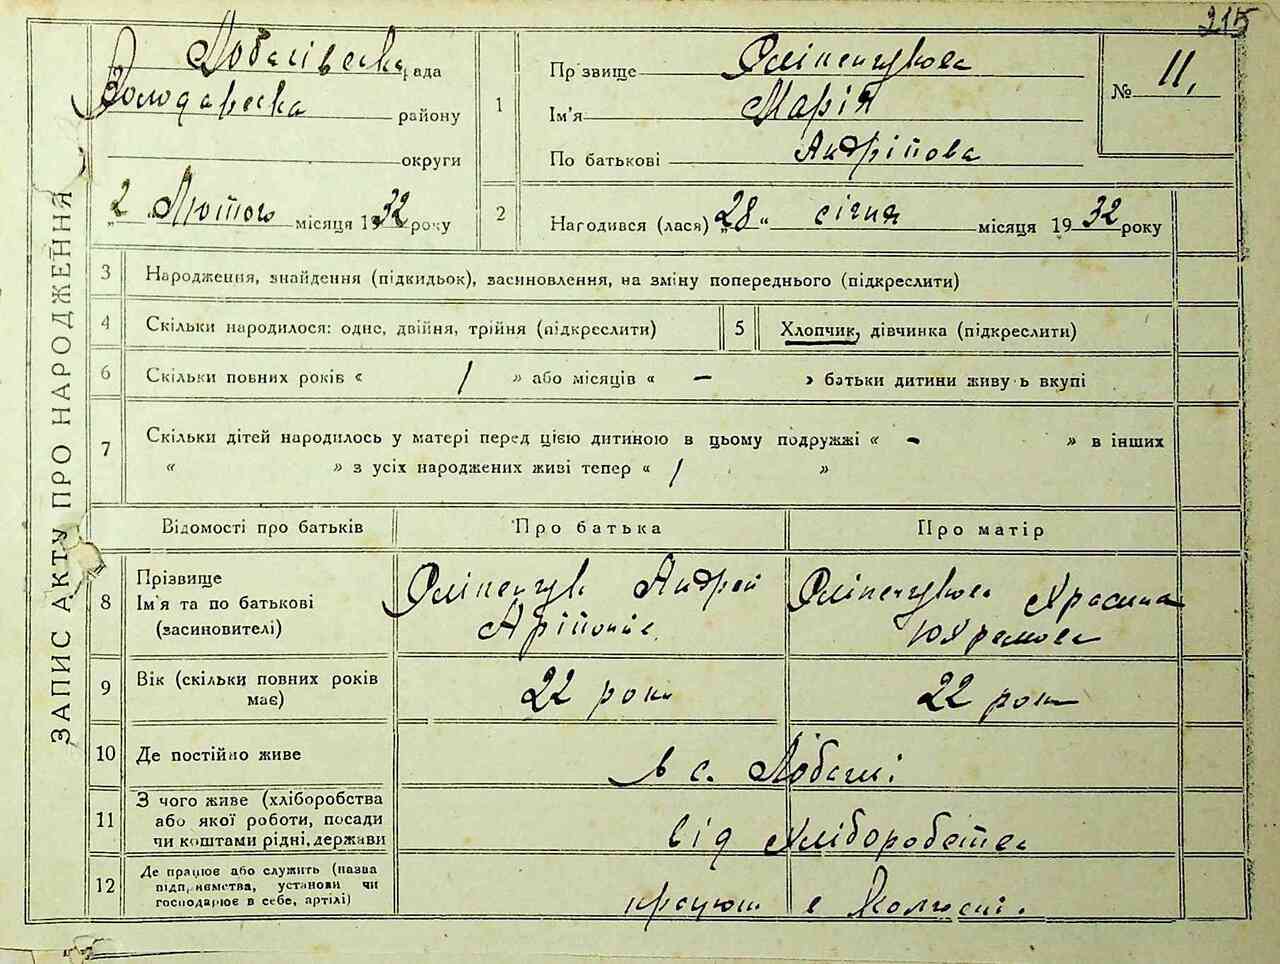 215
Лобачівська рада
Володарська району
округи
„ 2 Лютого місяця 1932 року
ЗАПИС АКТУ ПРО НАРОДЖЕННЯ
1
Прізвище
Ім'я Марія
По батькові Андріїова
№ 11,
2 Народився (лася) „28" січня місяця 1932 року
3 Народження, знайдення (підкидьок), засиновлення, на зміну попереднього (підкреслити)
4 Скільки народилося: одне, двійня, трійня (підкреслити) 5 Хлопчик, дівчинка (підкреслити)
6 Скільки повних років « / » або місяців « – » батьки дитини живуть вкупі
7 Скільки дітей народилось у матері перед цією дитиною в цьому подружжі « - » в інших
« » з усіх народжених живі тепер « 1 »
Відомості про батьків Про батька Про матір
8 Прізвище
Ім'я та по батькові
(засиновителі)
Андрей
9 Вік (скільки повних років
має) 22 роки 22 роки
10 Де постійно живе в с. Лобачеві
11 З чого живе (хліборобства
або якої роботи, посади
чи коштами рідні, держави від хліборобства
12 Де працює або служить (назва
підприємства, установи чи
господарює в себе, артілі) працюють в Колгоспі.